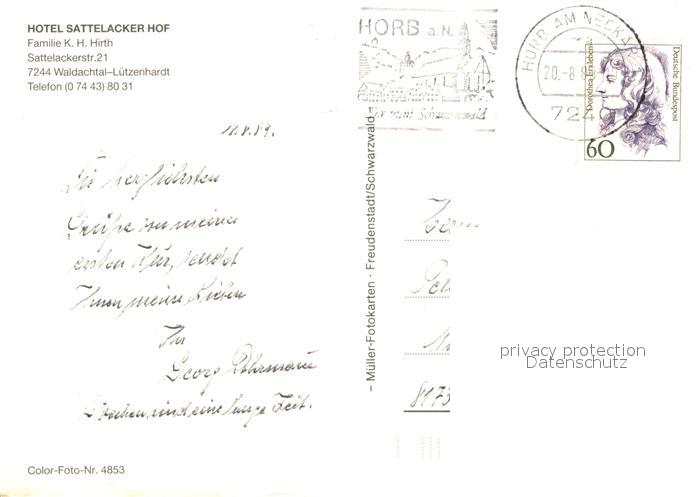 HOTEL SATTELACKER HOF
Familie K. H. Hirth
Sattelackerstr.21
7244 Waldachtal–Lützenhardt
Telefon (0 74 43) 80 31
HORB a.N.
HORB AM NECKAR
20.-8.8
724
Dorothea Erxleben
Deutsche Bundespost
60
Die herzlichsten
Grüße von meiner
ersten Kur, sendet
Ihnen meine Lieben
Ihr
Georg
Wochen sind eine lange Zeit.
– Müller-Fotokarten · Freudenstadt/Schwarzwald –
8173
privacy protection
Datenschutz
Color-Foto-Nr. 4853